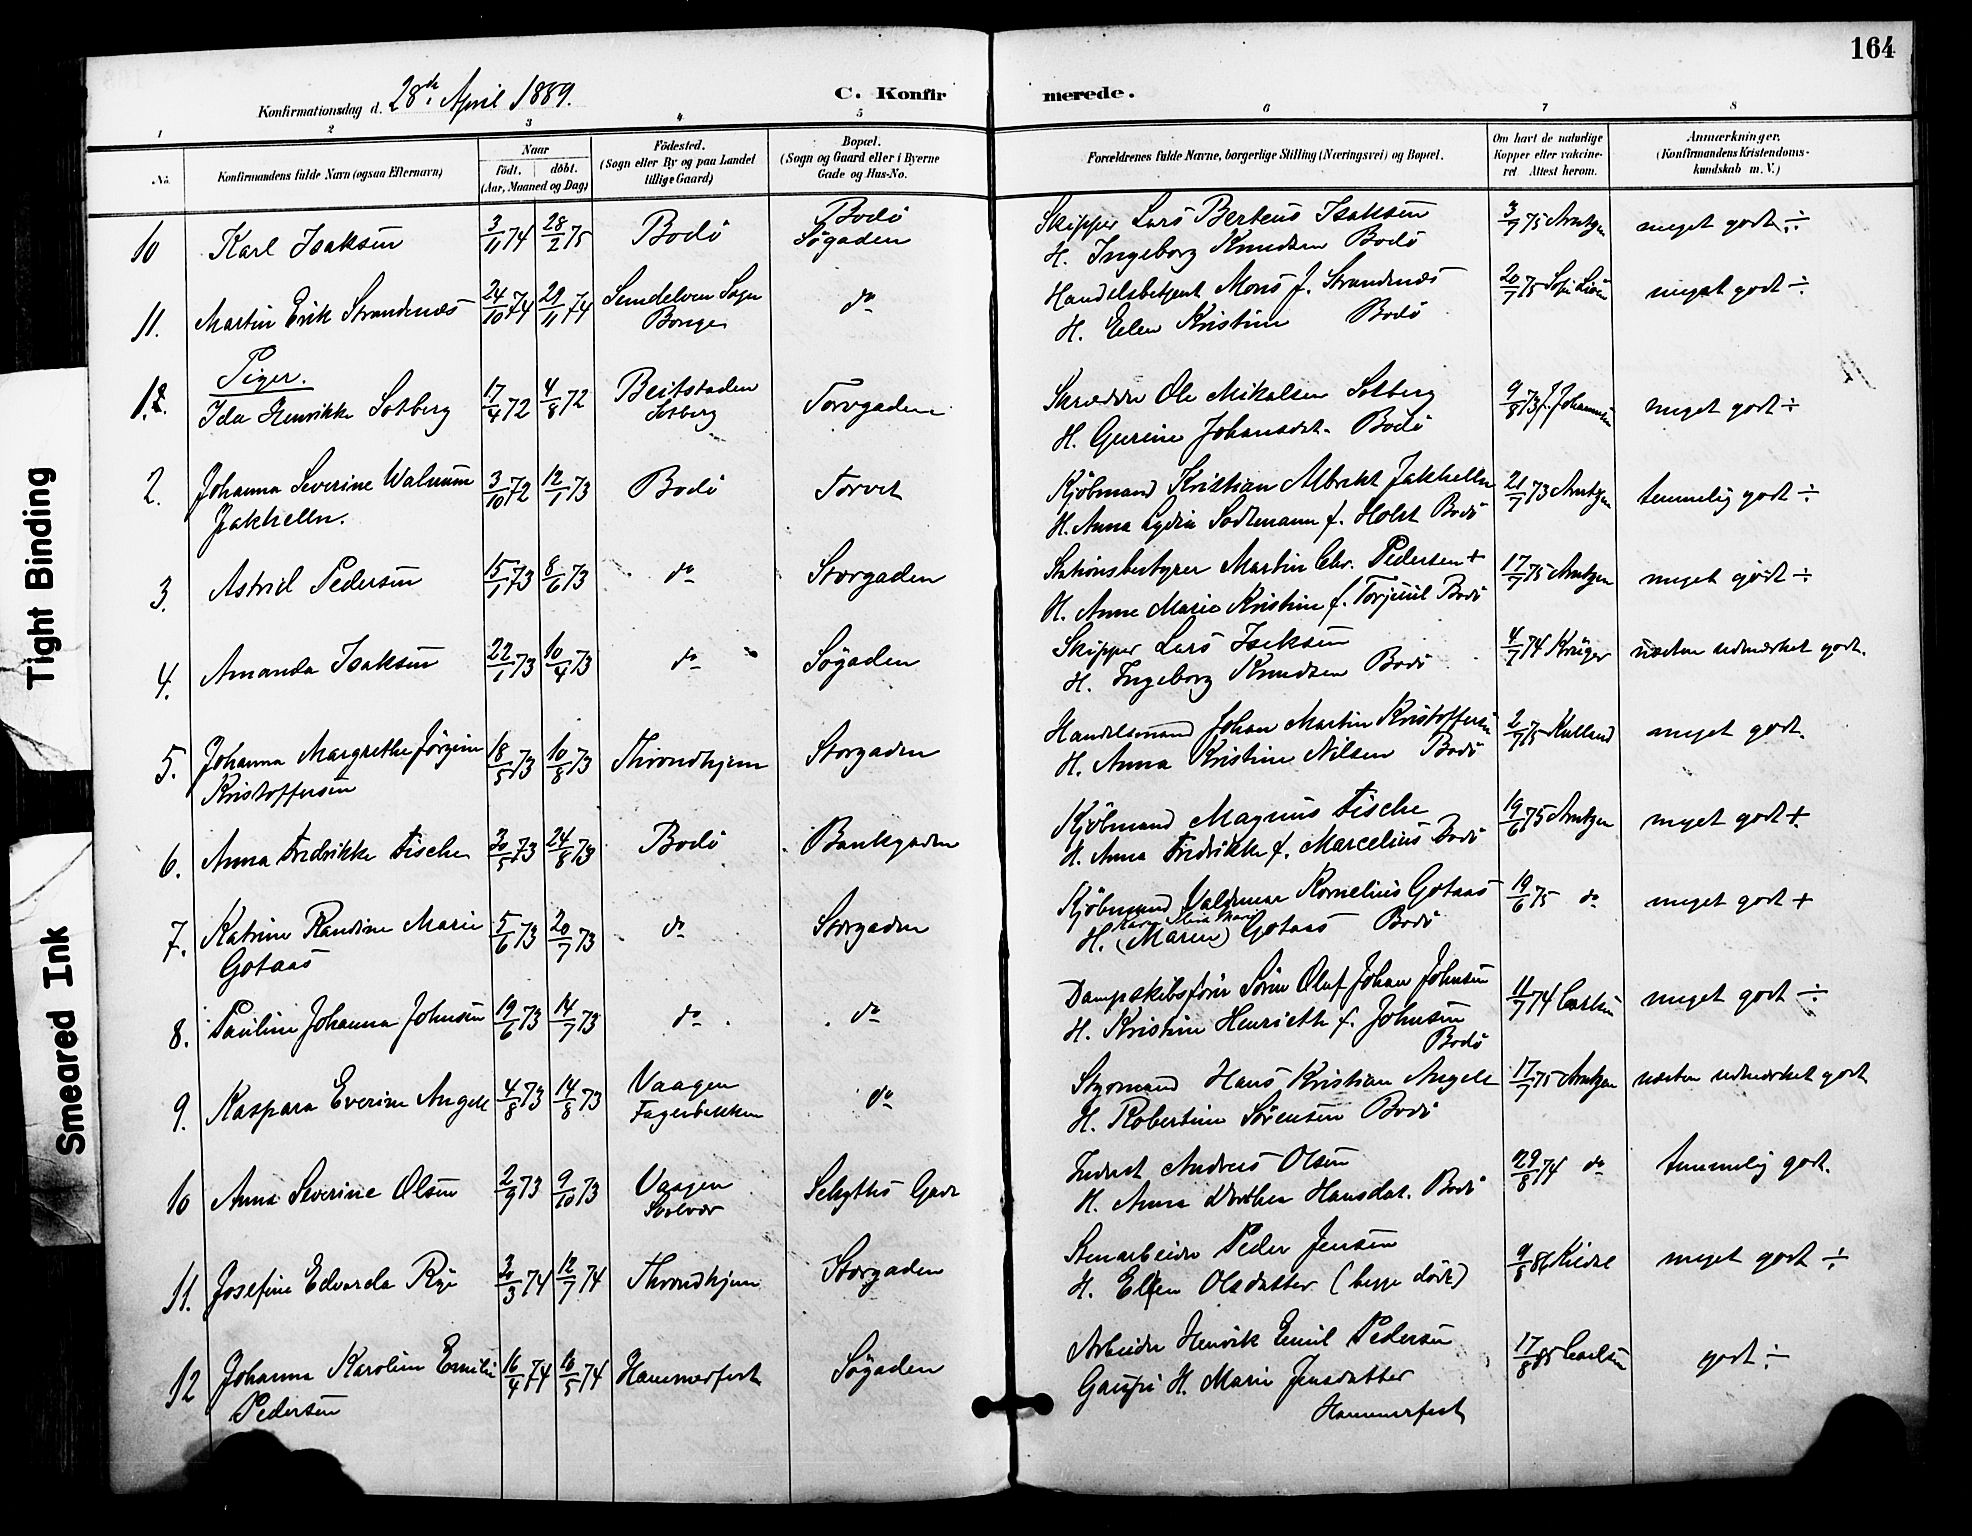 164
Konfirmationsdag d. 28de April 1889.
C. Konfirmerede.
1 2 3 4 5 6 7 8
No.
Konfirmandens fulde Navn (ogsaa Efternavn)
Naar
födt. döbt.
(Aar, Maaned og Dag)
Födested.
(Sogn eller By og paa Landet
tillige Gaard)
Bopæl.
(Sogn og Gaard eller i Byerne
Gade og Hus-No.
Forældrenes fulde Navne, borgerlige Stilling (Næringsvei) og Bopæl.
Om havt de naturlige
Kopper eller vakcine-
ret Attest herom.
Anmærkninger.
(Konfirmandens Kristendoms-
kundskab m. V.)
10 Karl Isaksen 3/11 74 28/2 75 Bodö Bodö
Søgaden
Skipper Lars Berteus Isaksen
H. Ingeborg Knudsen Bodö
3/7 75 Arntzen meget godt ÷
11. Martin Erik Strandnæs 24/10 74 29/11 74 Sundelven Sogn
Borge do
Handelsbetjent Mons J. Strandnæs
H. Elen Kristine Bodö
20/7 75 meget godt ÷
Piger.
1. Ida Henrikke Solberg 17/4 72 4/8 72 Beitstaden
Solberg Torvgaden
Skrædder Ole Mikalsen Solberg
H. Gurine Johansdt. Bodö
9/8 73 J. Johannsen meget godt ÷
2. Johanna Severine Walnum
Jakhelln. 3/10 72 12/1 73 Bodö Torvet
Kjöbmand Kristian Albrekt Jakhelln
H. Anna Lydia Sodemann f. Holst Bodö
21/7 73 Arntzen temmelig godt ÷
3. Astrid Pedersen 15/1 73 8/6 73 do Storgaden
Stationsbestyrer Martin Chr. Pedersen +
H. Anne Marie Kristine f. Torjuul Bodö
17/7 75 Arntzen meget godt ÷
4. Amanda Isaksen 22/1 73 10/4 73 do Søgaden
Skipper Lars Isaksen
H. Ingeborg Knudsen Bodö
4/7 74 Krüger næsten udmærket godt.
5. Johanna Margrethe Jörgine
Kristoffersen 18/5 73 10/8 73 Throndhjem Storgaden
Handelsmand Johan Martin Kristoffersen
H. Anna Kristine Nilsen Bodö
2/7 75 Kulland meget godt.
6. Anna Fredrikke Fische 30/5 73 24/8 73 Bodö Bankgaden
Kjöbmand Magnus Fische
H. Anna Fredrikke f. Marcelius Bodö
19/6 75 Arntzen meget godt +
7. Katrine Randine Marie
Gotaas 5/6 73 20/7 73 do Storgaden
Kjöbmand Valdemar Kornelius Gotaas
H. (Maren) Gotaas Bodö
19/6 75 do meget godt +
8. Pauline Johanna Johnsen 19/6 73 14/7 73 do do
Dampskibsförer Sören Oluf Johan Johnsen
H. Kristine Henriette f. Johnsen
Bodö
11/7 74 Carlsen meget godt ÷
9. Kaspara Everine Angell 4/8 73 14/8 73 Vaagen
Fagerbekken do
Styrmand Hans Kristian Angell
H. Robertine Sörensen Bodö
17/7 75 Arntzen næsten udmærket godt
10 Anna Severine Olsen 2/9 73 9/10 73 Vaagen
Svolvær Schyttes Gade
Inderst Andreas Olsen
H. Anna Dorthea Hansdat. Bodö
29/8 74 do temmelig godt.
11. Josefine Edvarda Rye 30/3 74 12/7 74 Throndhjem Storgaden
Stenarbeider Peder Jensen
H. Ellen Olsdatter (begge döde)
9/8 86 Kielde meget godt ÷
12 Johanna Karoline Emilie
Pedersen 16/4 74 10/5 74 Hammerfest Søgaden
Arbeider Henrik Emil Pedersen
H. Marie Jensdatter
Hammerfest
17/8 85 Carlsen godt ÷
Tight Binding
Smeared Ink